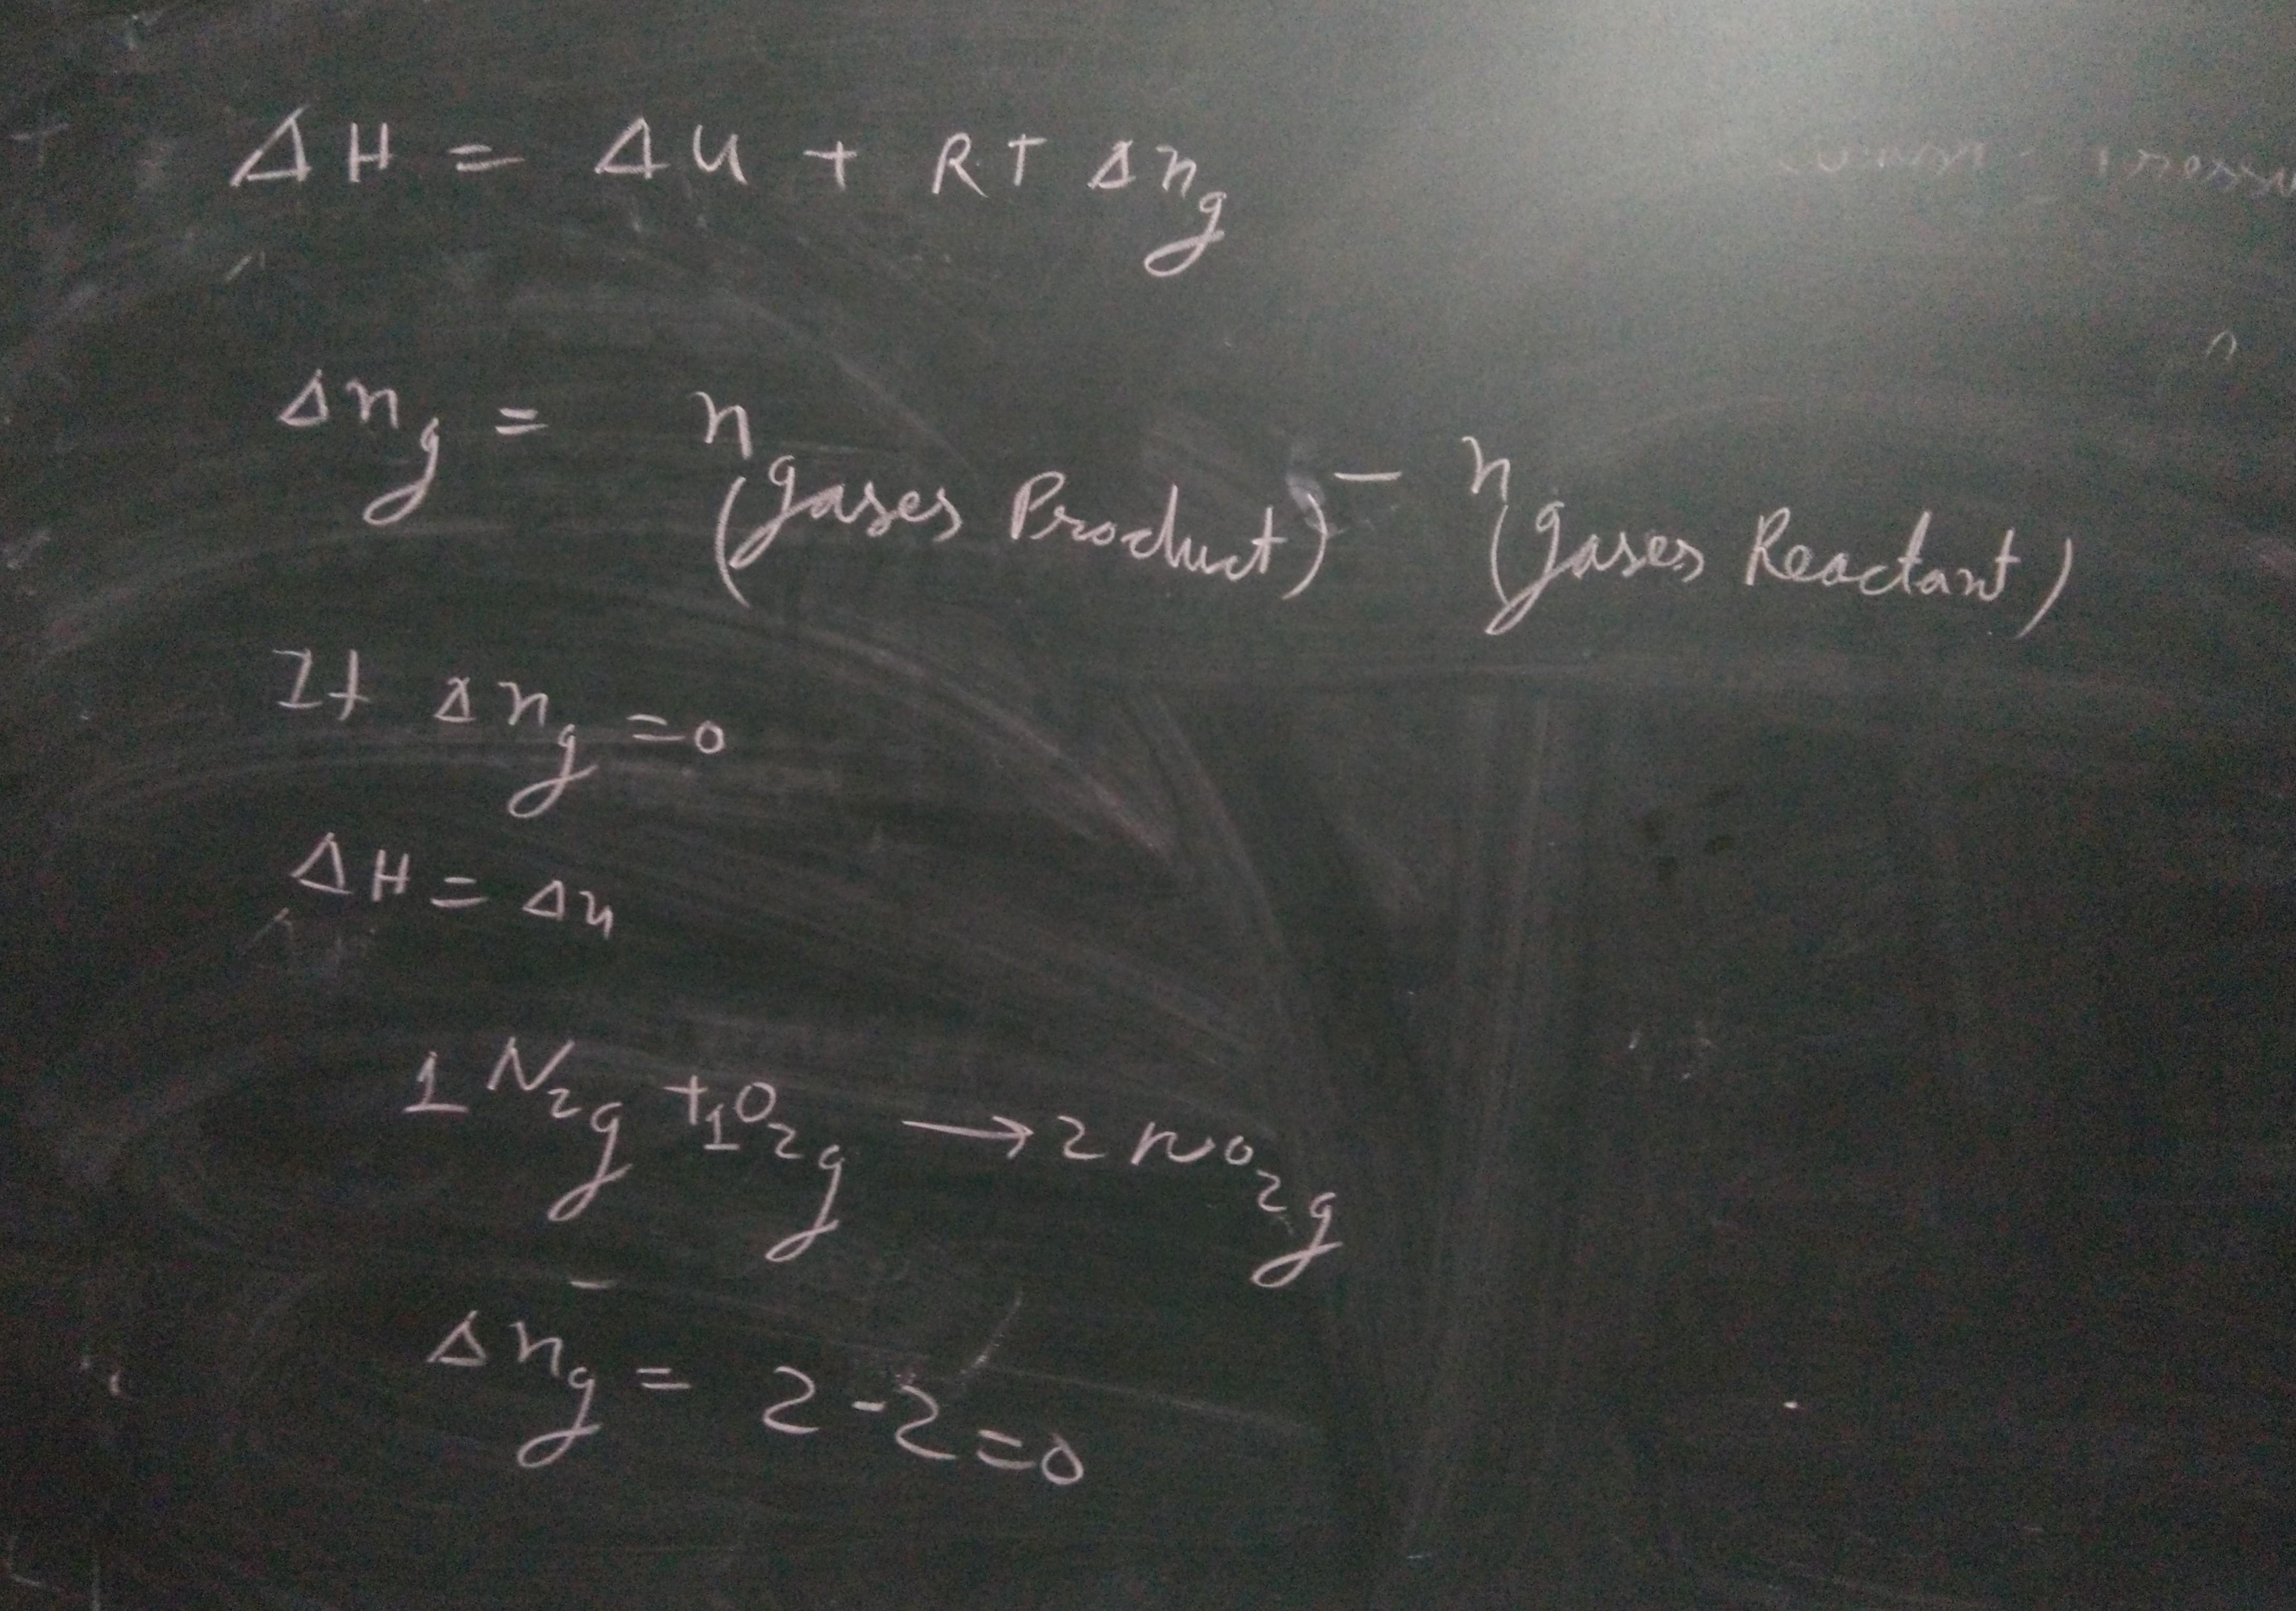 ΔH = Δu + RT Δng
Δng = n(gases Product) - n(gases Reactant)
If Δng = 0
ΔH = Δu
1 N2g + 1O2g → 2 NO2g
Δng = 2-2=0